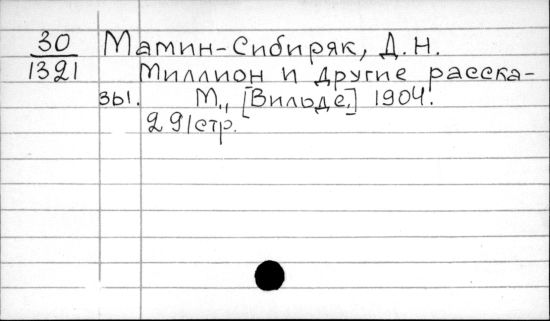 30 Мамин-Сибиряк, Д.Н.
1321 Миллион и другие расска-
зы. М., [Вильде,] 1904.
291стр.